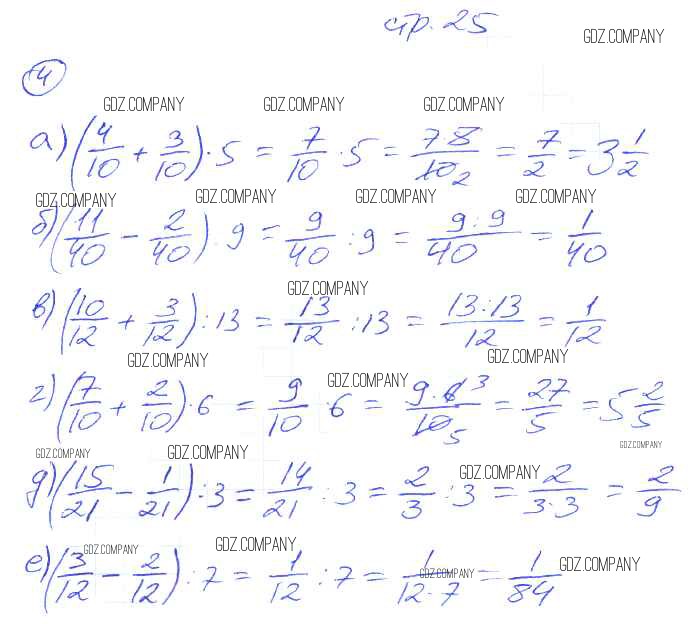 стр. 25
GDZ.COMPANY
4
GDZ.COMPANY GDZ.COMPANY GDZ.COMPANY
а) (4/10 + 3/10) · 5 = 7/10 · 5 = 7·5/10 2 = 7/2 = 3 1/2
GDZ.COMPANY GDZ.COMPANY GDZ.COMPANY GDZ.COMPANY
б) (11/40 − 2/40) : 9 = 9/40 : 9 = 9:9/40 = 1/40
GDZ.COMPANY
в) (10/12 + 3/12) : 13 = 13/12 : 13 = 13:13/12 = 1/12
GDZ.COMPANY GDZ.COMPANY
GDZ.COMPANY
г) (7/10 + 2/10) · 6 = 9/10 · 6 = 9·6 3/10 5 = 27/5 = 5 2/5
GDZ.COMPANY GDZ.COMPANY GDZ.COMPANY
GDZ.COMPANY
д) (15/21 − 1/21) : 3 = 14/21 : 3 = 2/3 : 3 = 2/3·3 = 2/9
GDZ.COMPANY GDZ.COMPANY
GDZ.COMPANY GDZ.COMPANY
е) (3/12 − 2/12) : 7 = 1/12 : 7 = 1/12·7 = 1/84